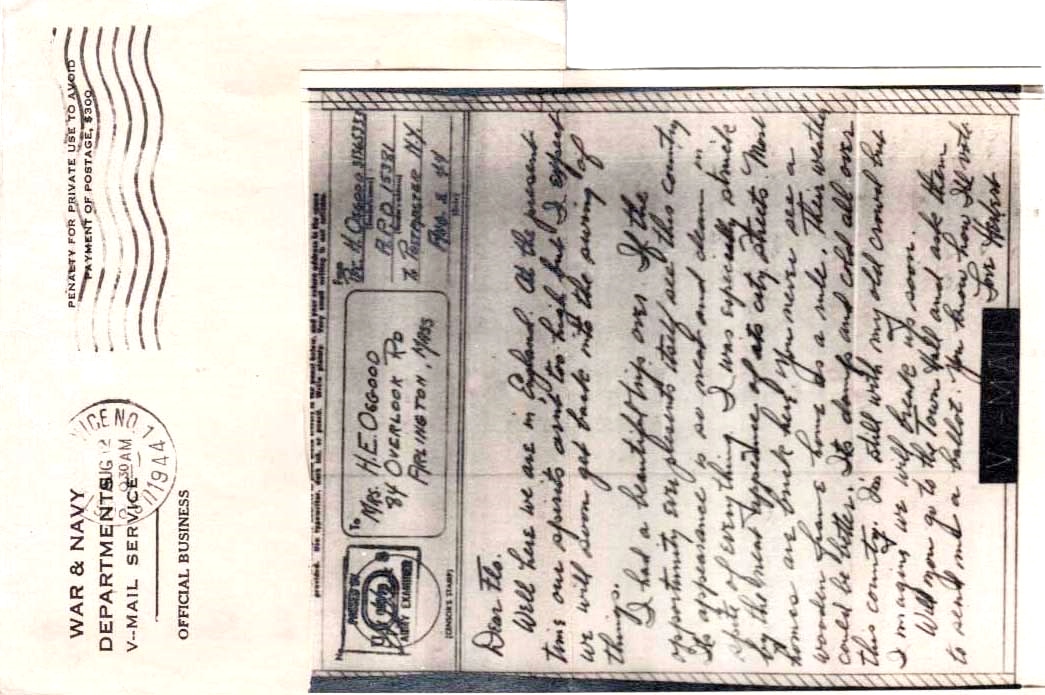 WAR & NAVY
DEPARTMENTS
V-MAIL SERVICE
OFFICIAL BUSINESS
NO. 1
AUG 12
30 AM
1944
PENALTY FOR PRIVATE USE TO AVOID
PAYMENT OF POSTAGE, $300
PASSED BY
ARMY EXAMINER
(CENSOR'S STAMP)
To
MRS. H.E. OSGOOD
84 OVERLOOK RD
ARLINGTON, MASS
From
H. OSGOOD
A.P.O. 15381
% POSTMASTER N.Y.
AUG. 2 44
Dear Flo.
Well here we are in England. At the present
time our spirits arnt too high but I expect
we will soon get back into the swing of
things.
I had a beautiful trip over. If the
opportunity ever presents itself see this country
Its appearance is so neat and clean in
spite of everything. I was especially struck
by the broad appearance of its city streets. Most
homes are brick here, you never see a
wooden frame home as a rule. Their weather
could be better. Its damp and cold all over
this country. I'm still with my old crowd but
I imagine we will break up soon.
Will you go to the Town Hall and ask them
to send me a ballot. You know how I'll vote.
Love
V-MAIL